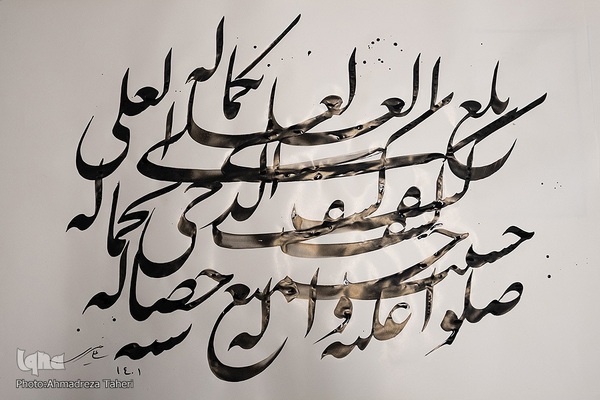 بلغ العلی بکماله
کشف الدجی بجماله
حسنت جمیع خصاله
صلوا علیه و آله
۱۴۰۱
iqna
Photo:Ahmadreza Taheri